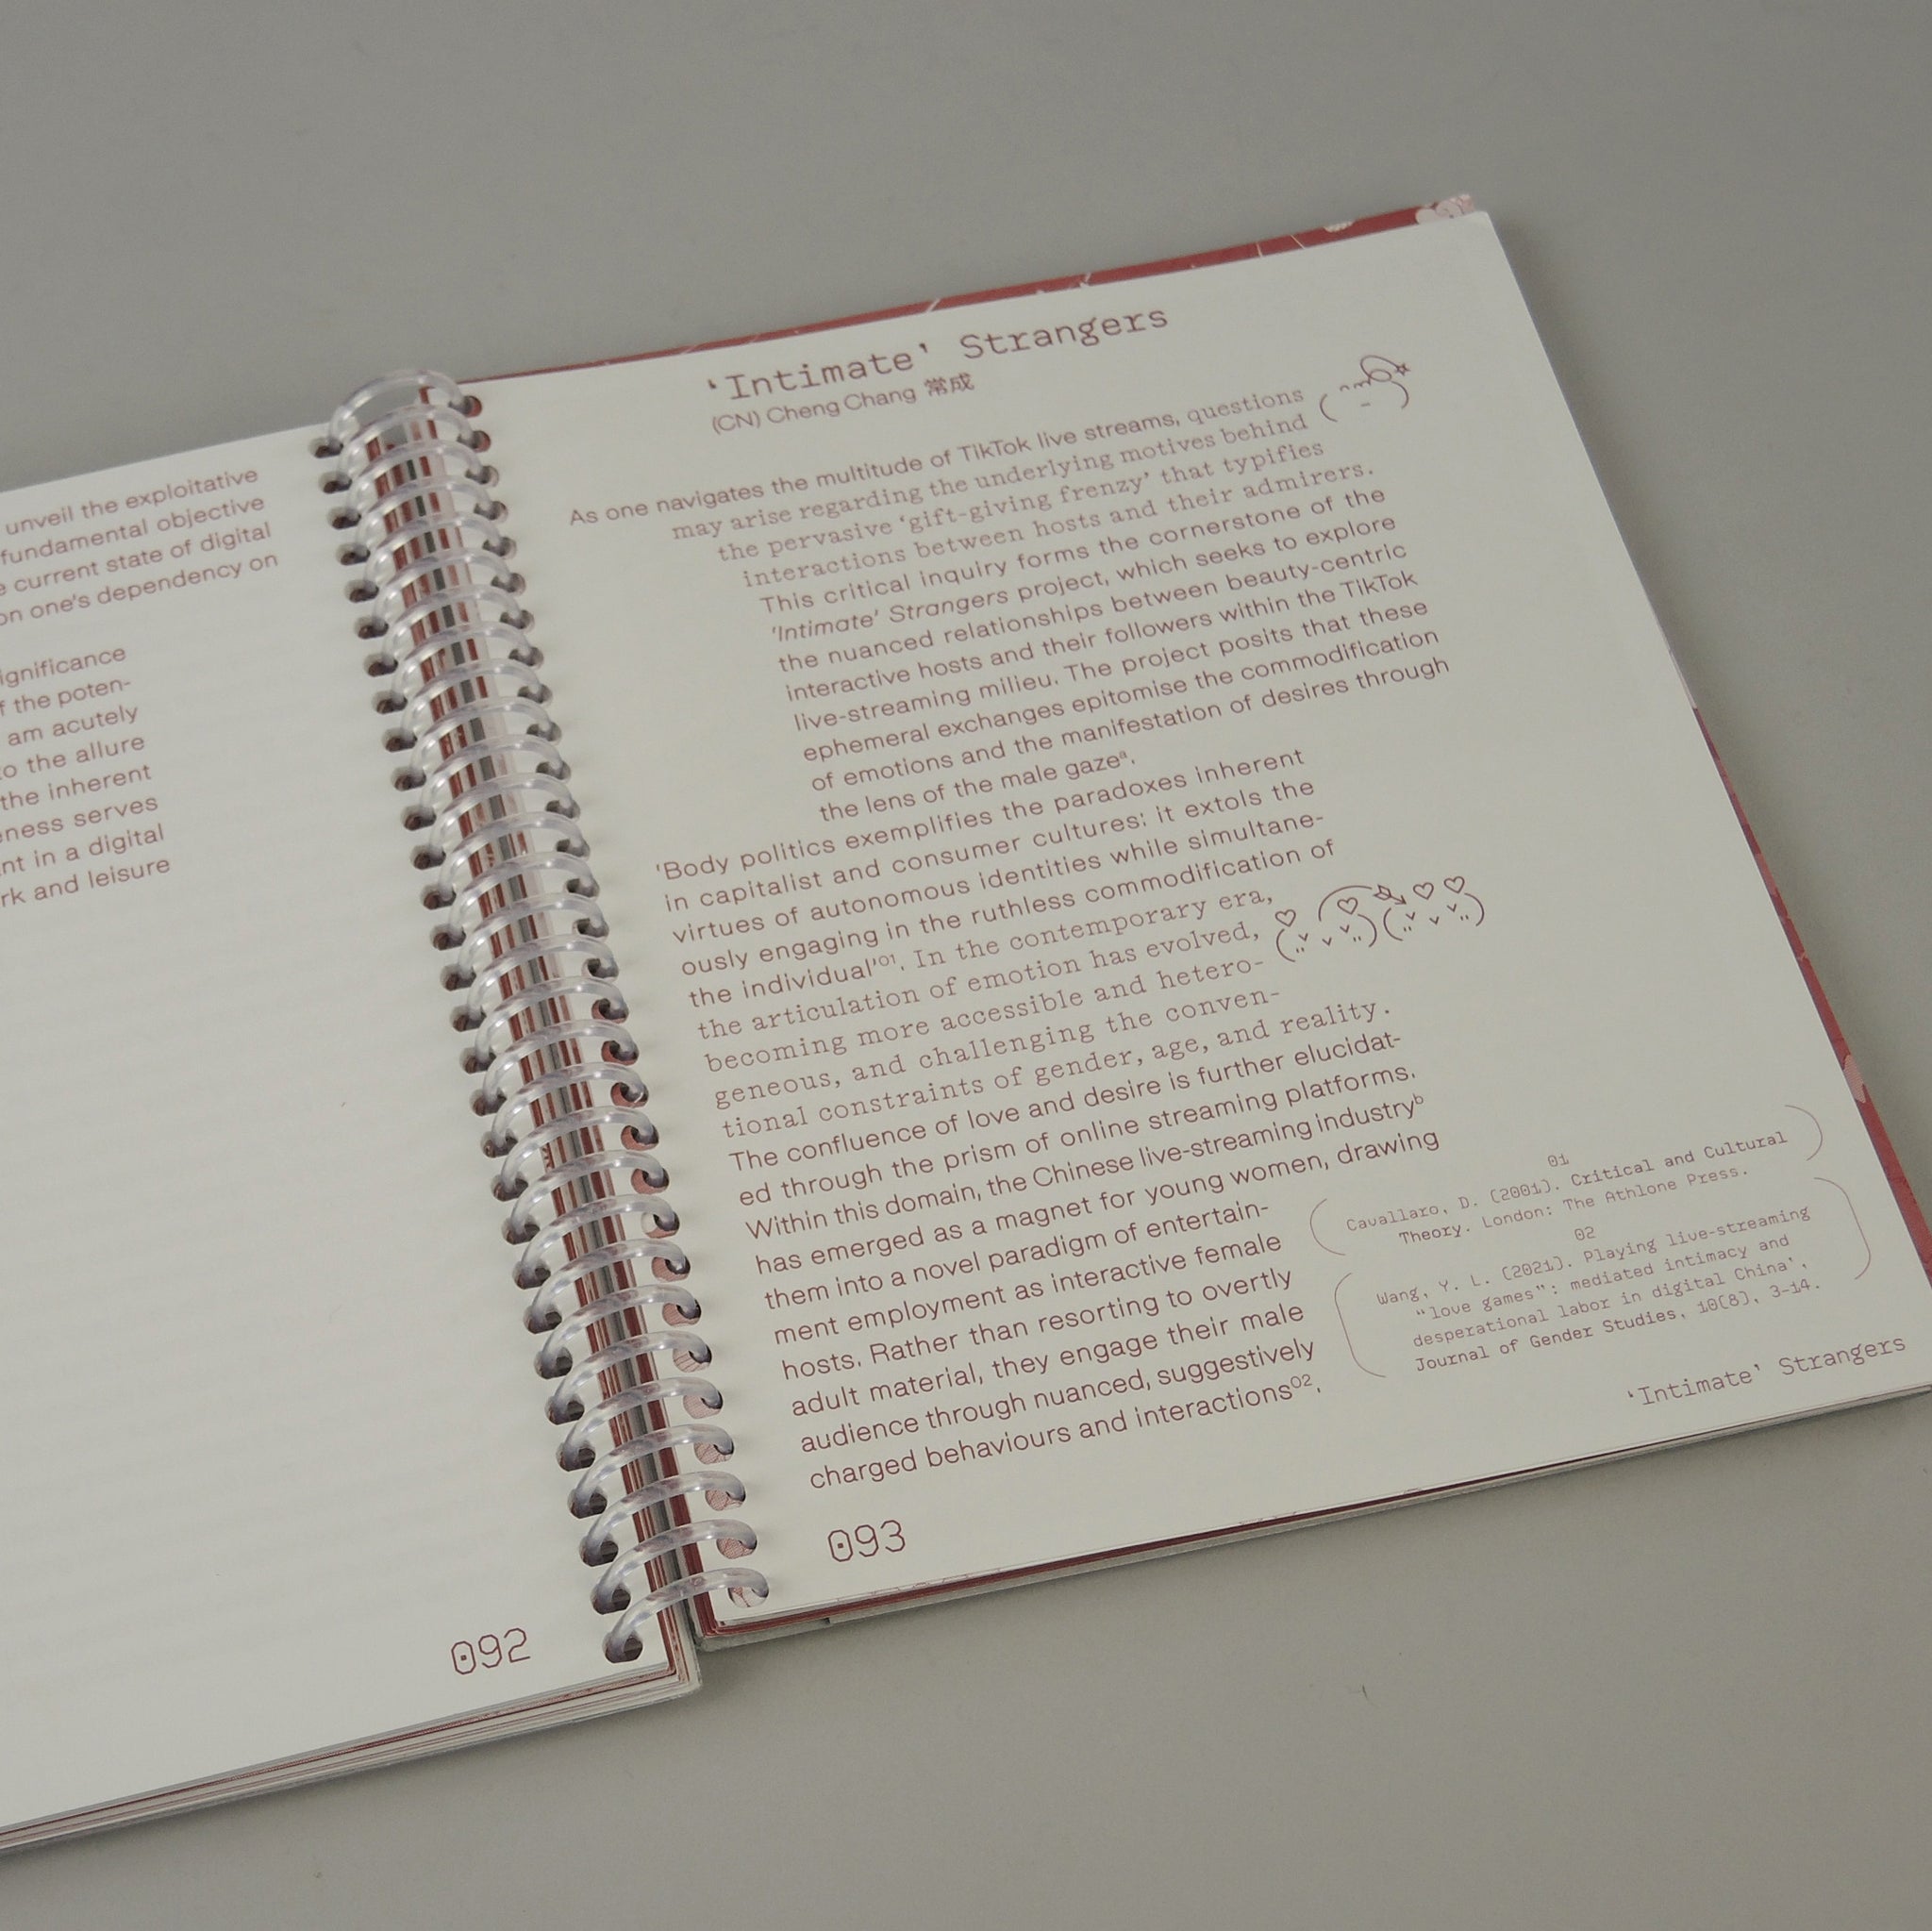 unveil the exploitative
fundamental objective
current state of digital
on one's dependency on
ignificance
f the poten-
am acutely
to the allure
the inherent
eness serves
nt in a digital
rk and leisure
092
‘Intimate’ Strangers
(CN) Cheng Chang 常成
As one navigates the multitude of TikTok live streams, questions
may arise regarding the underlying motives behind
the pervasive ‘gift-giving frenzy’ that typifies
interactions between hosts and their admirers.
This critical inquiry forms the cornerstone of the
'Intimate' Strangers project, which seeks to explore
the nuanced relationships between beauty-centric
interactive hosts and their followers within the TikTok
live-streaming milieu. The project posits that these
ephemeral exchanges epitomise the commodification
of emotions and the manifestation of desires through
the lens of the male gazeᵃ.
'Body politics exemplifies the paradoxes inherent
in capitalist and consumer cultures: it extols the
virtues of autonomous identities while simultane-
ously engaging in the ruthless commodification of
the individual'⁰¹. In the contemporary era,
the articulation of emotion has evolved,
becoming more accessible and hetero-
geneous, and challenging the conven-
tional constraints of gender, age, and reality.
The confluence of love and desire is further elucidat-
ed through the prism of online streaming platforms.
Within this domain, the Chinese live-streaming industryᵇ
has emerged as a magnet for young women, drawing
them into a novel paradigm of entertain-
ment employment as interactive female
hosts. Rather than resorting to overtly
adult material, they engage their male
audience through nuanced, suggestively
charged behaviours and interactions⁰².
01
Cavallaro, D. (2001). Critical and Cultural
Theory. London: The Athlone Press.
02
Wang, Y. L. (2021). Playing live-streaming
“love games”: mediated intimacy and
desperational labor in digital China’,
Journal of Gender Studies, 10(8), 3-14.
‘Intimate’ Strangers
093